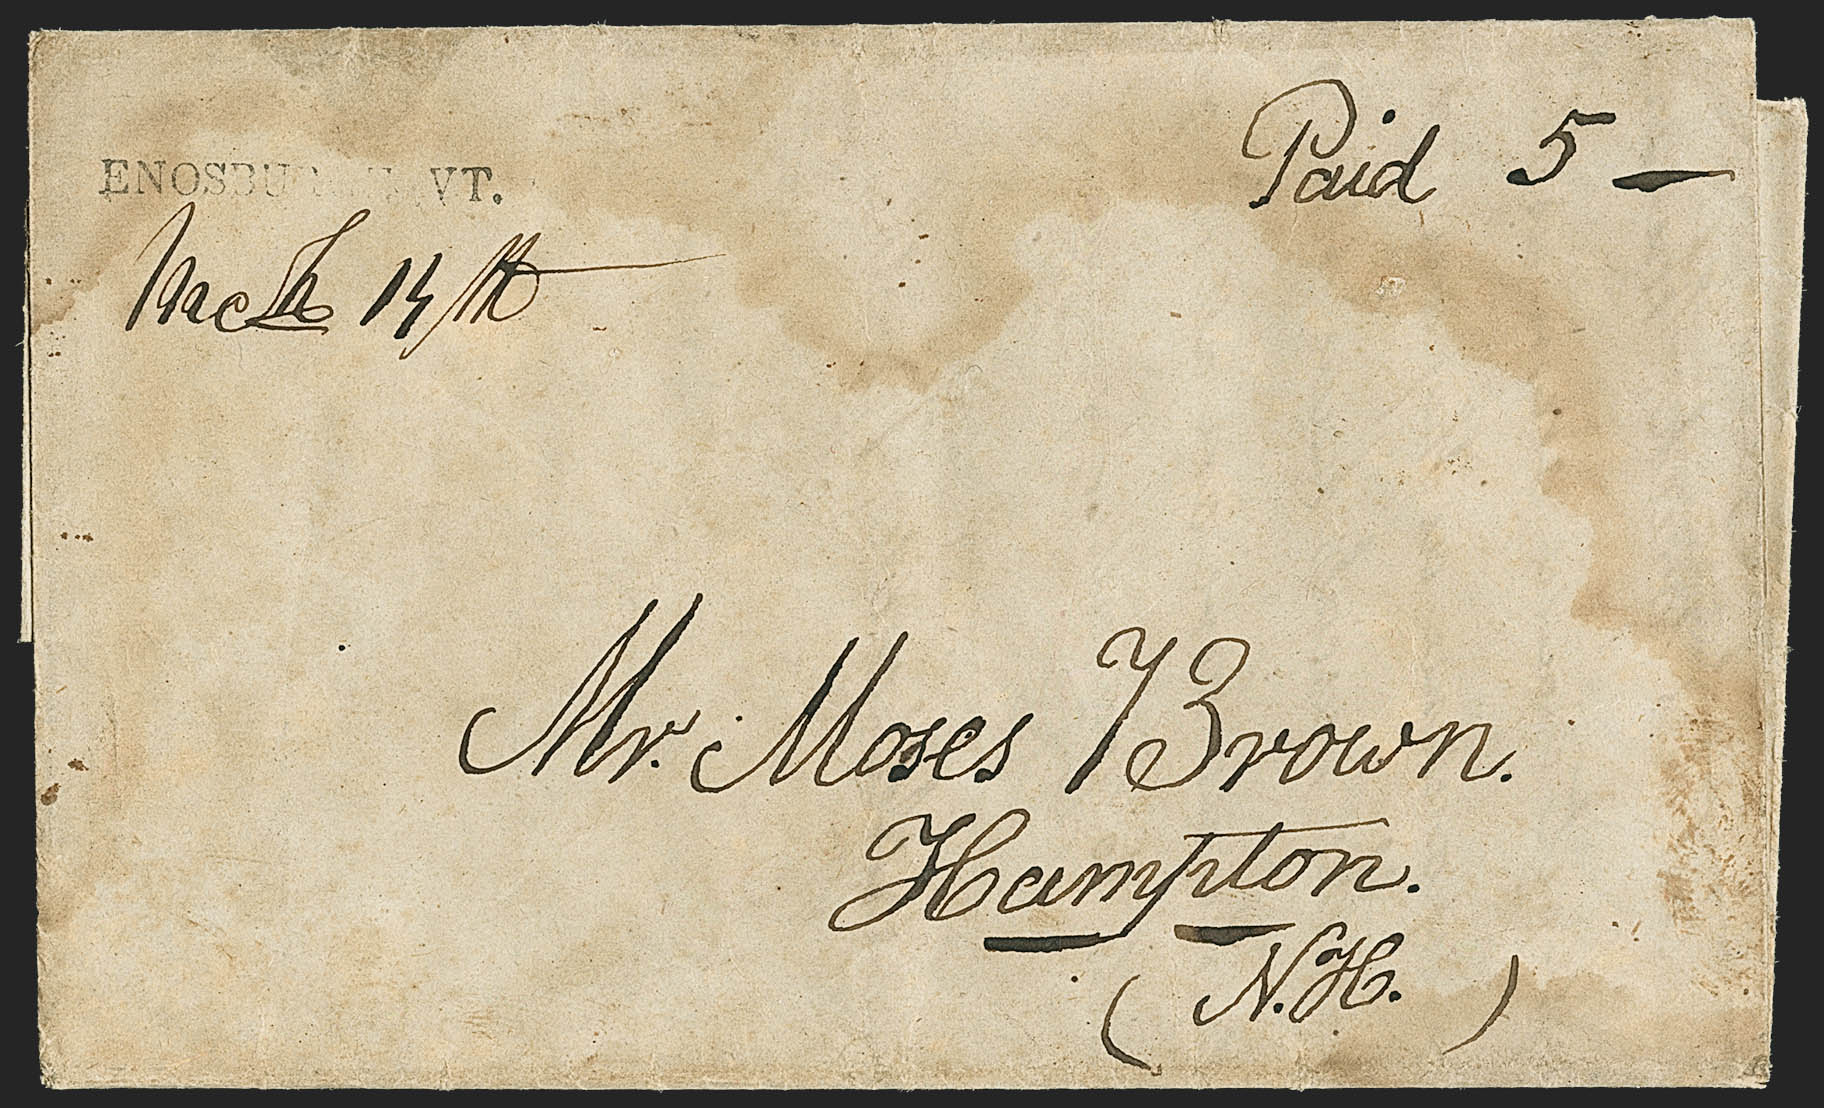 ENOSBU VT.
Paid 5 —
Mch 14th
Mr. Moses Brown.
Hampton.
(N.H.)